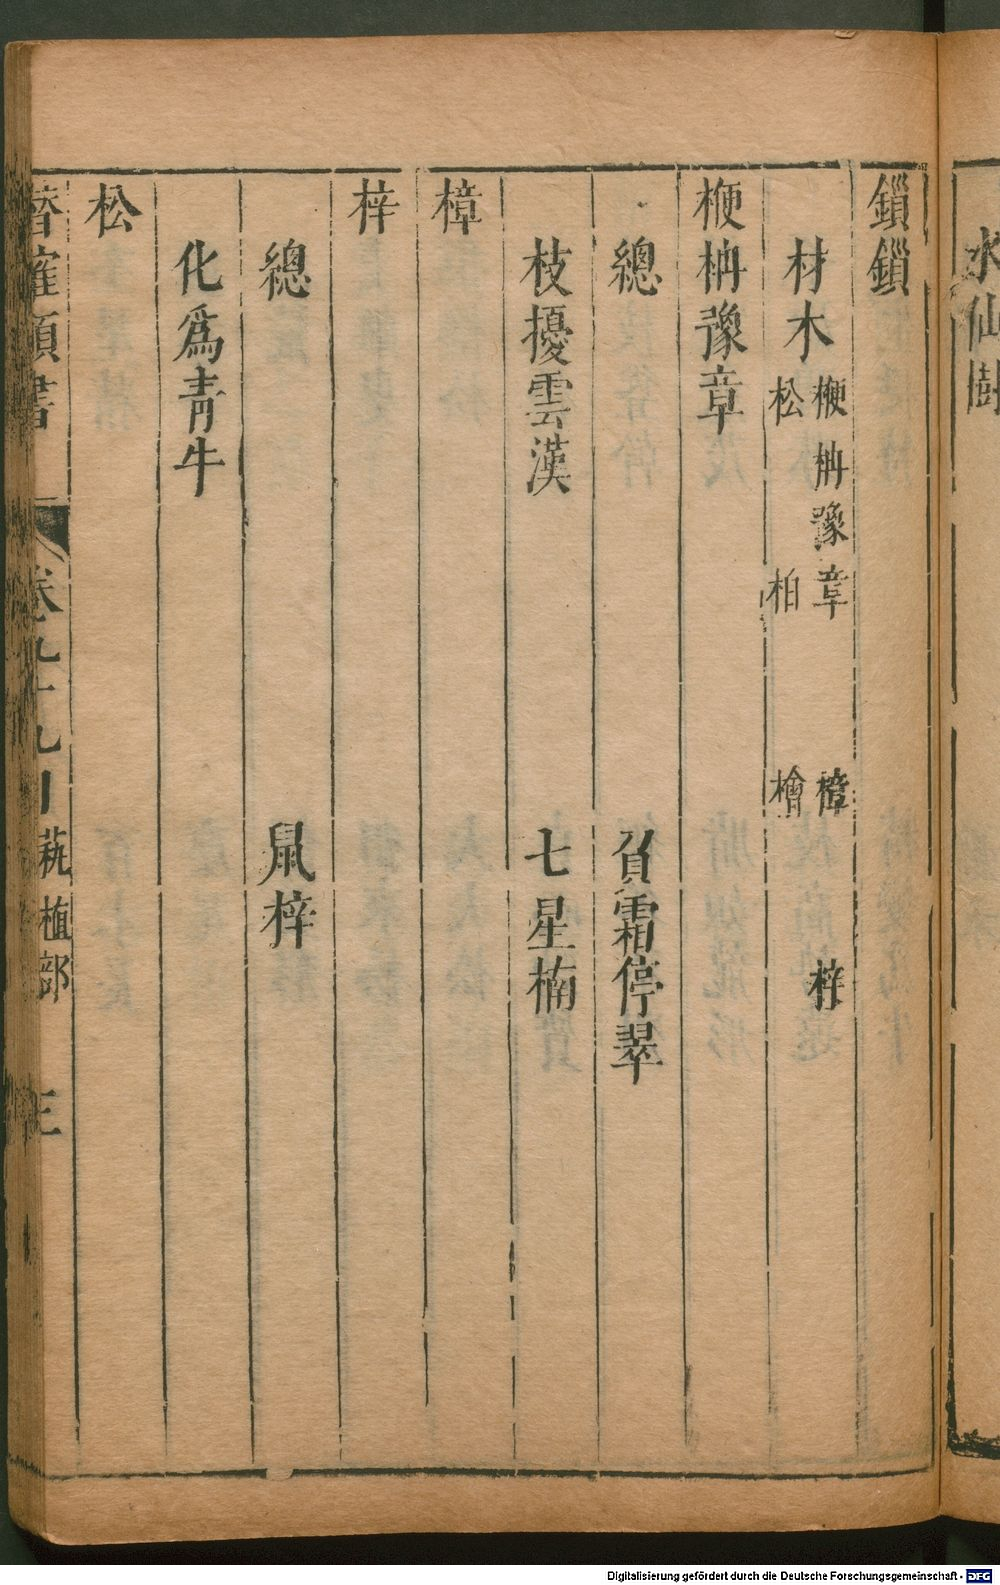 水仙樹
鎖鎖
材木 楩柟豫章 樟 梓
松 柏 檜
楩柟豫章
總 負霜停翠
枝擾雲漢 七星楠
樟
梓
總 鼠梓
化爲青牛
松
潛確類書 卷九十九目 蓺植部 三
Digitalisierung gefördert durch die Deutsche Forschungsgemeinschaft - DFG